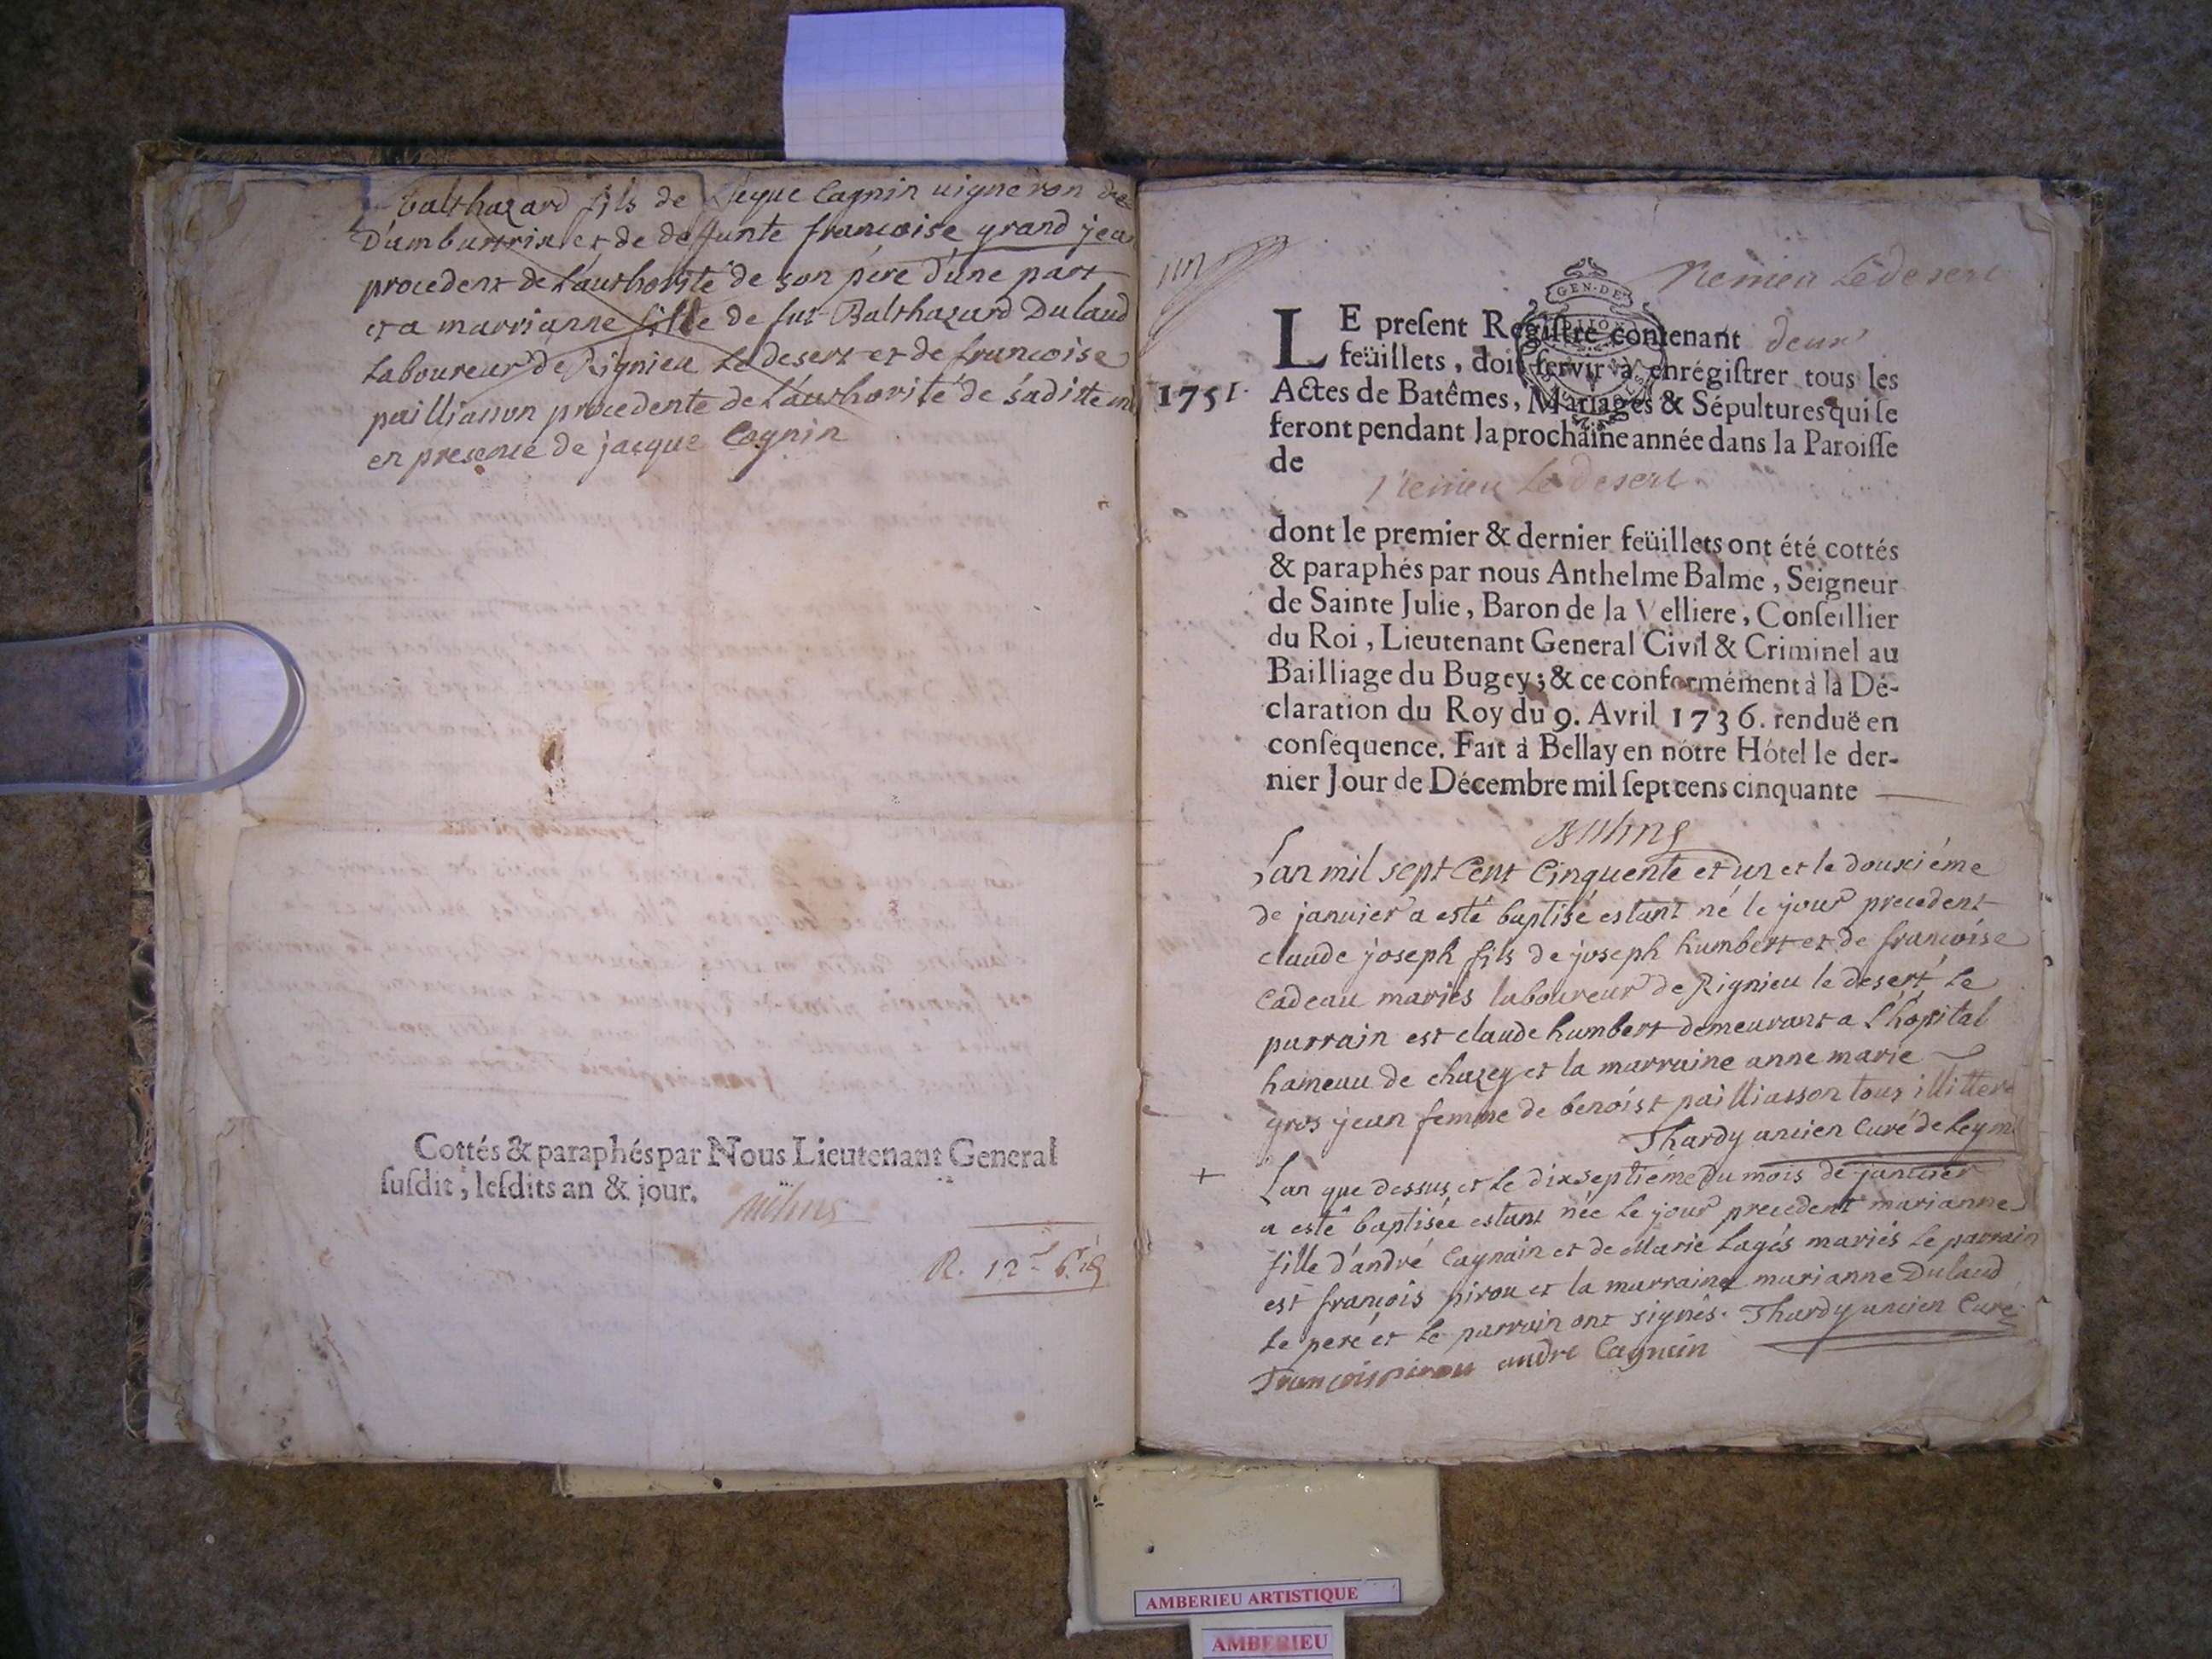 Balthazard fils de Cagnin uigneron de
D'ambutrix et de deffunte francoise grand jean
procedent de l'authorité de son père d'une part
et a marrianne fille de fut Balthazard Dulaud
Laboureur de Rignieu Le desert et de francoise
pailliasson procedente de l'authorité de saditte
en presence de jacque Cagnin
Cottés & paraphés par Nous Lieutenant General
susdit, lesdits an & jour.
R. 12
1751.
LE present Registre contenant deux
feüillets, doit servir à enrégistrer tous les
Actes de Batêmes, Mariages & Sépultures qui se
feront pendant la prochaine année dans la Paroisse
de
Le desert
dont le premier & dernier feüillets ont été cottés
& paraphés par nous Anthelme Balme, Seigneur
de Sainte Julie, Baron de la Velliere, Conseillier
du Roi, Lieutenant General Civil & Criminel au
Bailliage du Bugey; & ce conformément à la Dé-
claration du Roy du 9. Avril 1736. renduë en
conséquence. Fait à Bellay en nôtre Hôtel le der-
nier Jour de Décembre mil sept cens cinquante
GEN. DE
DIJON
L'an mil sept Cent Cinquente et un et le douxiéme
de januier a esté baptisé estant né le jour precedent
claude joseph fils de joseph humbert et de francoise
Cadeau mariés laboureur de Rignieu le desert Le
parrain est claude humbert demeurant a l'hôpital
hameau de chazey et la marraine anne marie
gros jean femme de benoist pailliasson tous illitteré
Thardy ancien Curé de Leym
+ L'an que dessus et Le dixseptiéme du mois de januier
a esté baptisée estant née Le jour precedent marianne
fille d'andré Cagnain et de Marie Lagés mariés Le parrain
est françois pirou et la marraine marianne Dulaud
Le pere et Le parrain ont signés. Thardy ancien Curé
francois pirou andre Cagnain
AMBERIEU ARTISTIQUE
AMBERIEU